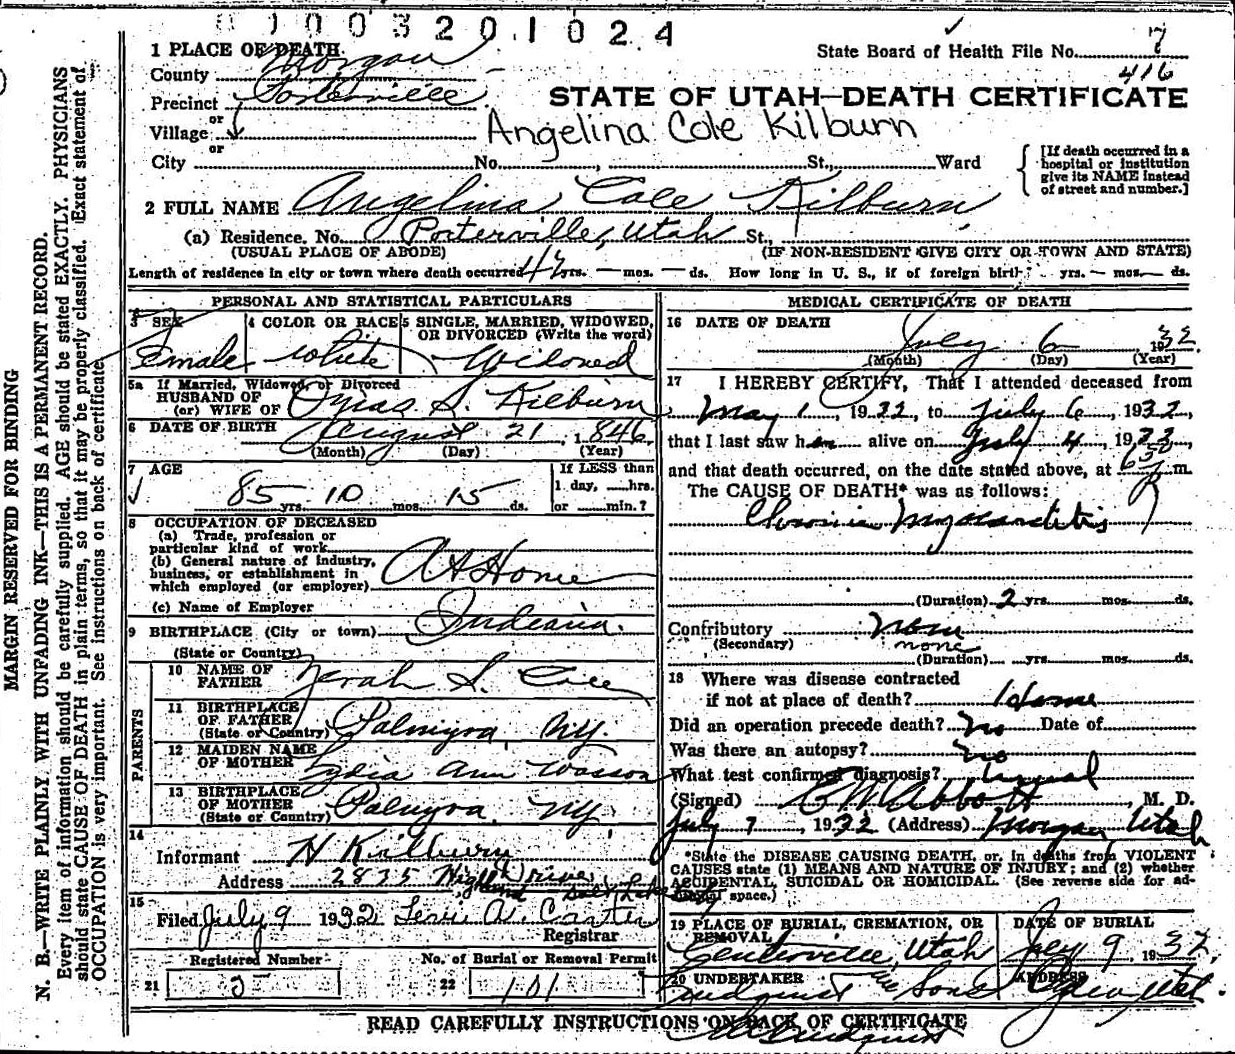 0 1 0 0 3 2 0 1 0 2 4
1 PLACE OF DEATH
State Board of Health File No. 7
County Morgan
416
Precinct Porterville
STATE OF UTAH—DEATH CERTIFICATE
or
Village
Angelina Cole Kilburn
or
City No. , St., Ward
[If death occurred in a hospital or institution give its NAME instead of street and number.]
2 FULL NAME Angelina Cole Kilburn
(a) Residence. No. Porterville, Utah St.,
(USUAL PLACE OF ABODE) (IF NON-RESIDENT GIVE CITY OR TOWN AND STATE)
Length of residence in city or town where death occurred 47 yrs. — mos. — ds. How long in U. S., if of foreign birth? yrs. — mos. — ds.
PERSONAL AND STATISTICAL PARTICULARS
3 SEX
Female
4 COLOR OR RACE
White
5 SINGLE, MARRIED, WIDOWED, OR DIVORCED (Write the word)
Widowed
5a If Married, Widowed, or Divorced
HUSBAND OF
(or) WIFE OF Ozias S. Kilburn
6 DATE OF BIRTH August 21, 1846.
(Month) (Day) (Year)
7 AGE
85 yrs. 10 mos. 15 ds.
If LESS than
1 day, hrs.
or min.?
8 OCCUPATION OF DECEASED
(a) Trade, profession or
particular kind of work
(b) General nature of industry,
business, or establishment in
which employed (or employer) At Home
(c) Name of Employer
9 BIRTHPLACE (City or town) Indiana.
(State or Country)
PARENTS
10 NAME OF
FATHER Zerah S. Cole
11 BIRTHPLACE
OF FATHER
(State or Country) Palmyra, NY.
12 MAIDEN NAME
OF MOTHER Lydia Ann Wasson
13 BIRTHPLACE
OF MOTHER
(State or Country) Palmyra, NY.
14
Informant H Kilburn
Address 2835 Highland Drive Salt Lake
15
Filed July 9 1932
Registrar
Registered Number
21 5
No. of Burial or Removal Permit
22 101
MEDICAL CERTIFICATE OF DEATH
16 DATE OF DEATH
July 6 1932.
(Month) (Day) (Year)
17 I HEREBY CERTIFY, That I attended deceased from
May 1, 1932, to July 6, 1932,
that I last saw her alive on July 4, 1932,
and that death occurred, on the date stated above, at m.
The CAUSE OF DEATH* was as follows:
Chronic Myocarditis
(Duration) 2 yrs. mos. ds.
Contributory none
(Secondary) none
(Duration) yrs. mos. ds.
18 Where was disease contracted
if not at place of death? Home
Did an operation precede death? No Date of
Was there an autopsy? No
What test confirmed diagnosis? Usual
(Signed) C M Abbott, M. D.
July 7, 1932 (Address) Morgan Utah
*State the DISEASE CAUSING DEATH, or, in deaths from VIOLENT
CAUSES state (1) MEANS AND NATURE OF INJURY; and (2) whether
ACCIDENTAL, SUICIDAL OR HOMICIDAL. (See reverse side for ad-
ditional space.)
19 PLACE OF BURIAL, CREMATION, OR
REMOVAL
Centerville, Utah
DATE OF BURIAL
July 9, 1932.
20 UNDERTAKER
Lindquist & Sons
ADDRESS
Ogden Utah.
READ CAREFULLY INSTRUCTIONS ON BACK OF CERTIFICATE
MARGIN RESERVED FOR BINDING
N. B.—WRITE PLAINLY WITH UNFADING INK—THIS IS A PERMANENT RECORD.
Every item of information should be carefully supplied. AGE should be stated EXACTLY. PHYSICIANS
should state CAUSE OF DEATH in plain terms, so that it may be properly classified. Exact statement of
OCCUPATION is very important. See instructions on back of certificate.